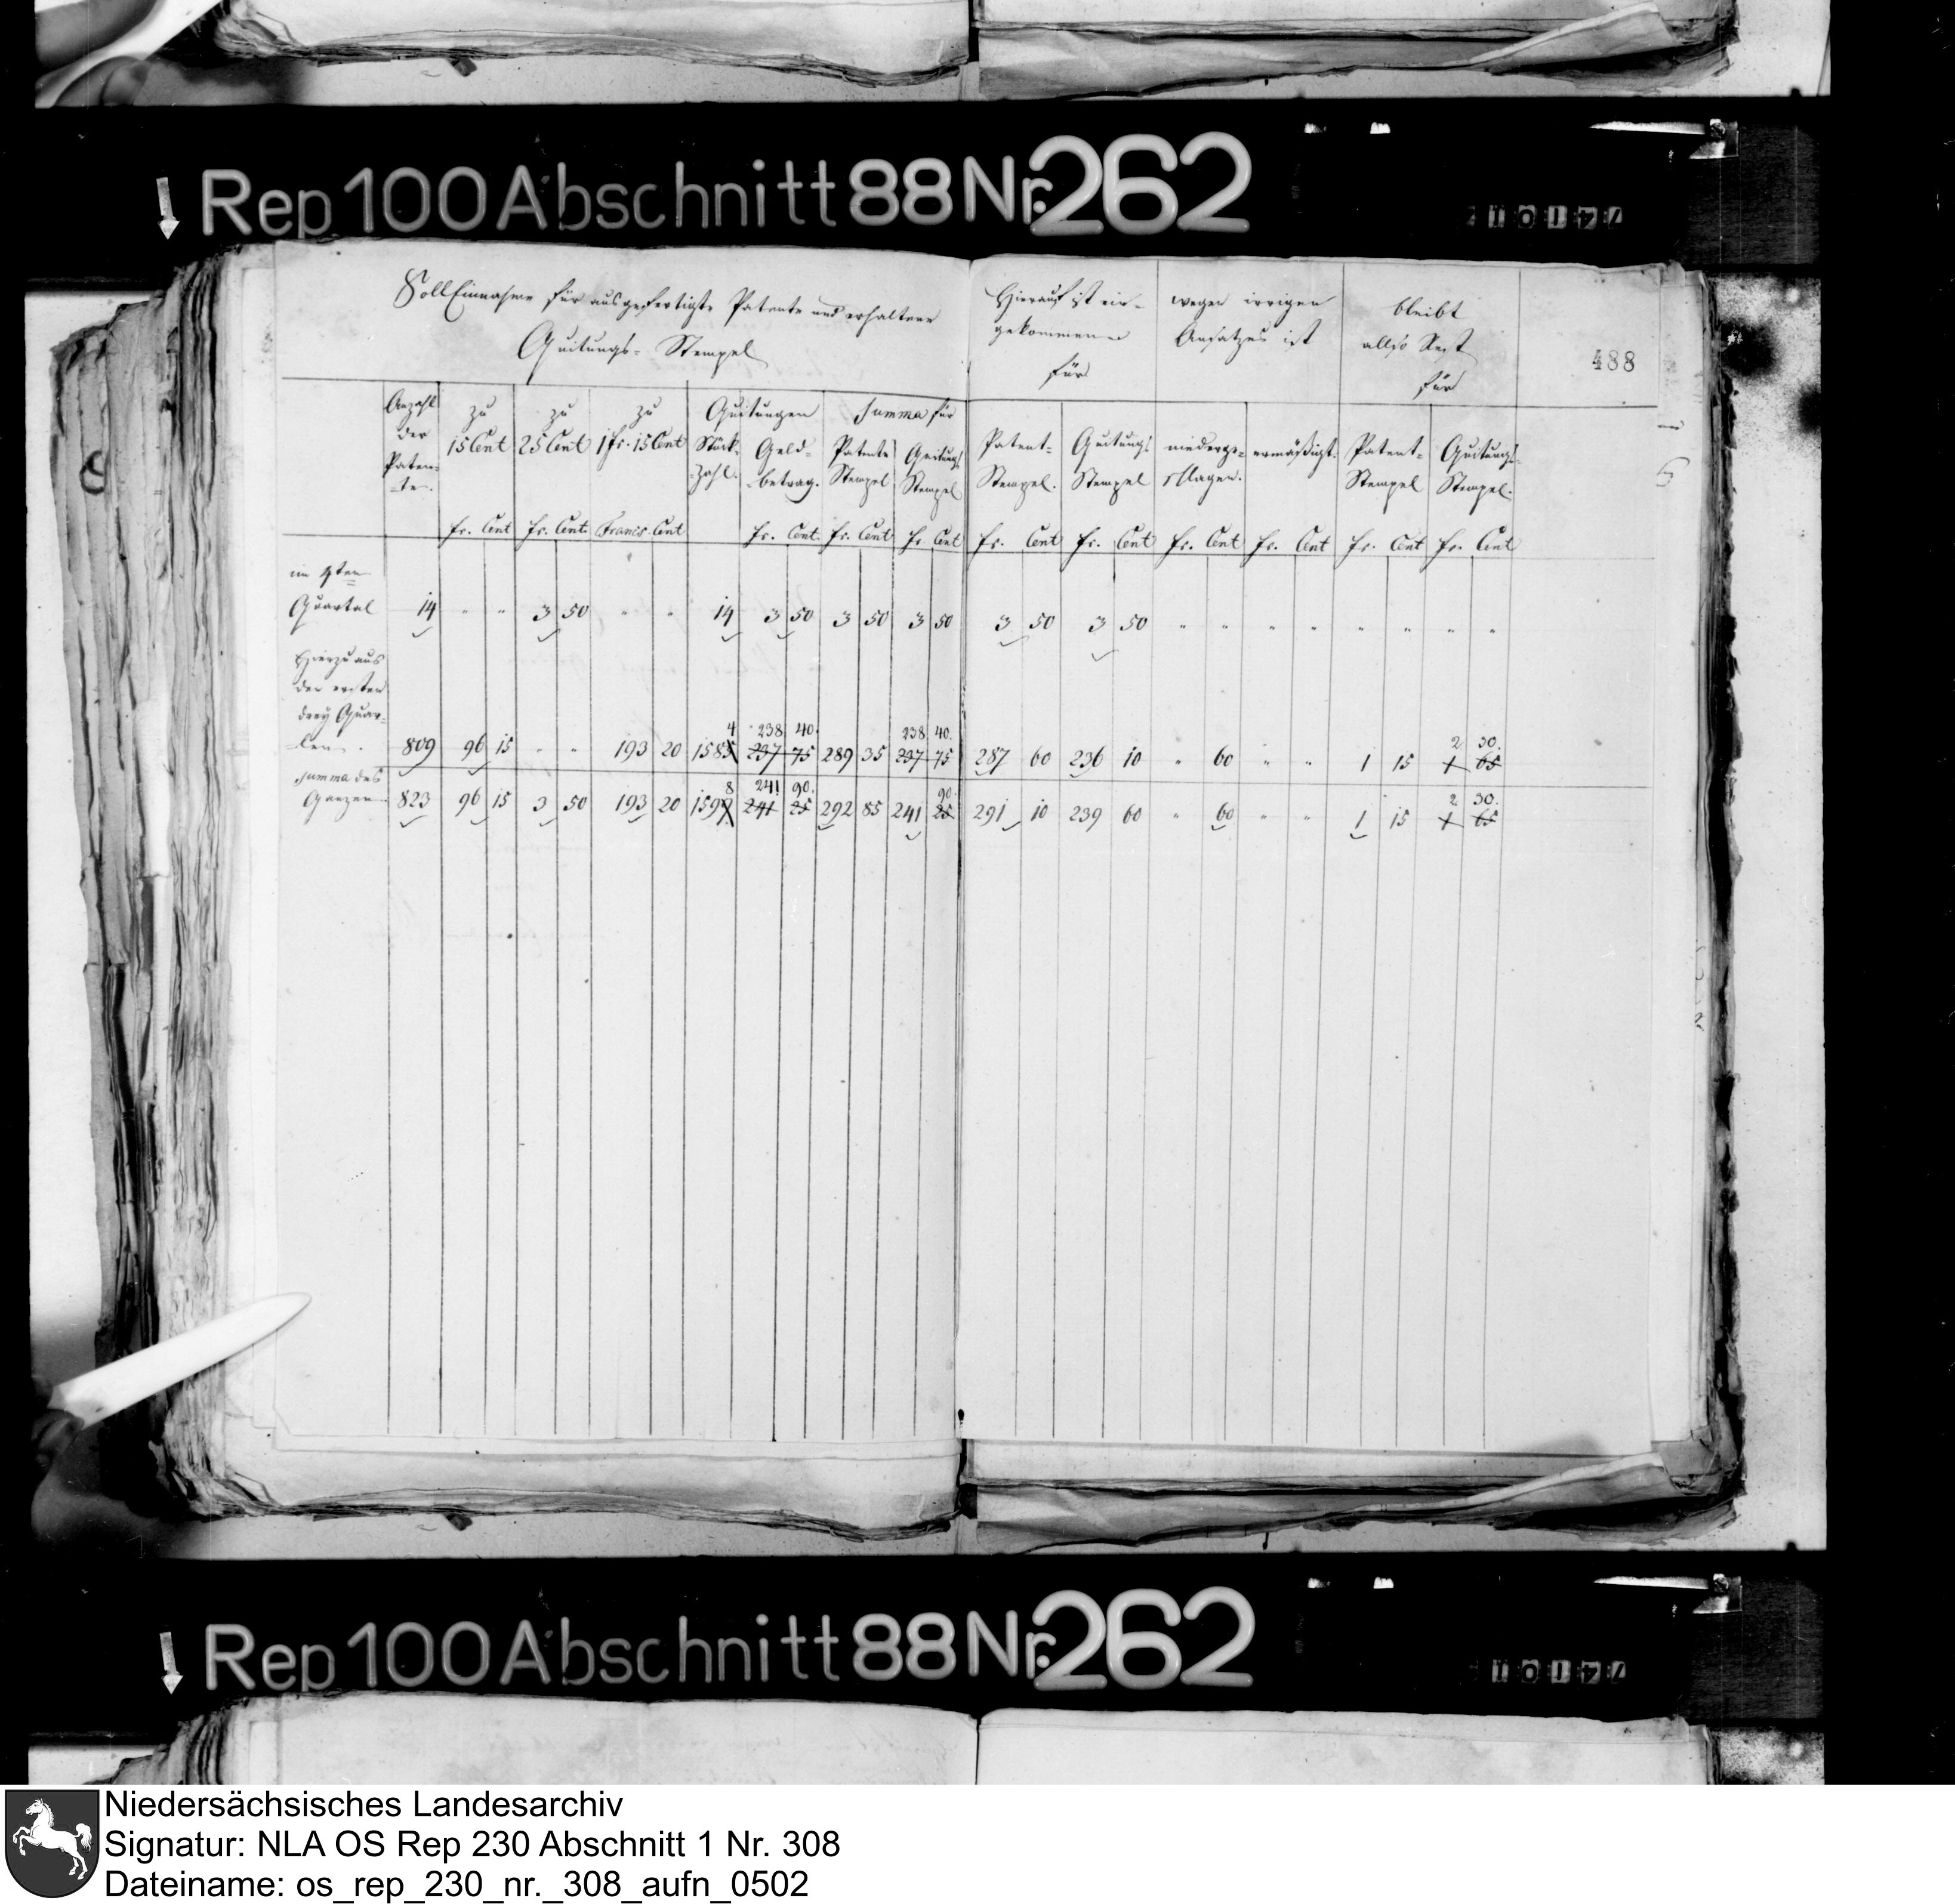 Rep 100 Abschnitt 88 Nr. 262
Soll Einnahme für ausgefertigte Patente und erhaltene
Quitungs- Stempel
Hierauf ist ein-
gekommen
für
wegen irrigen
Ansatzes ist
bleibt
allso Rest
für
488
Anzahl
der
Paten-
te.
zu
15 Cent
zu
25 Cent
zu
1 fr. 15 Cent
Quitungen
Stück-
zahl.
Geld-
betrag.
Summa für
Patente
Stempel
Quitungs
Stempel
Patent-
Stempel.
Quitungs
Stempel
niederge-
schlagen.
ermäßigt.
Patent-
Stempel
Quitungs-
Stempel.
fr. Cent fr. Cent. Francs Cent fr. Cent. fr. Cent fr. Cent fr. Cent fr. Cent fr. Cent fr. Cent fr. Cent fr. Cent
im 4ten
Quartal 14 " " 3 50 " " 14 3 50 3 50 3 50 3 50 3 50 " " " " " " " "
Hierzu aus
den ersten
drey Quar-
len. 809 96 15 " " 193 20 1585 237 75 289 35 237 75 287 60 236 10 " 60 " " 1 15 1 65
4 238 40. 238 40. 2 30.
Summa des
Ganzen 823 96 15 3 50 193 20 1599 241 25 292 85 241 25 291 10 239 60 " 60 " " 1 15 1 65
8 241 90. 90. 2 30.
Rep 100 Abschnitt 88 Nr. 262
Niedersächsisches Landesarchiv
Signatur: NLA OS Rep 230 Abschnitt 1 Nr. 308
Dateiname: os_rep_230_nr._308_aufn_0502